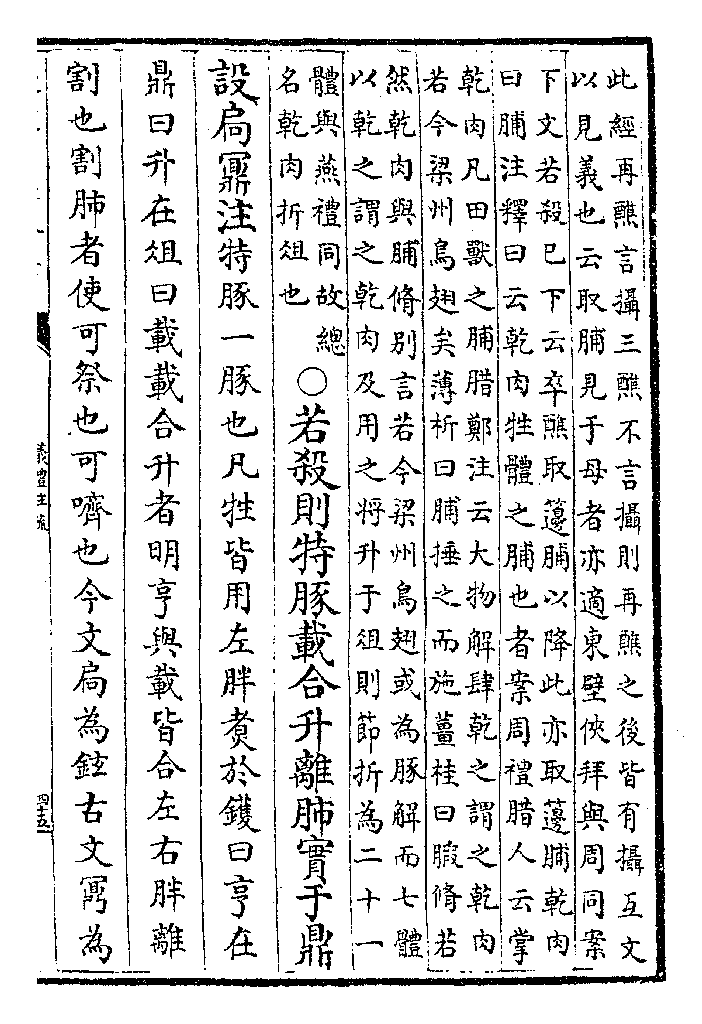 此經再醮言攝三醮不言攝則再醮之後皆有攝互文
以見義也云取脯見于母者亦適東壁俠拜與周同案
下文若殺已下云卒醮取籩脯以降此亦取籩脯乾肉
曰脯注釋曰云乾肉牲體之脯也者案周禮腊人云掌
乾肉凡田獸之脯腊鄭注云大物解肆乾之謂之乾肉
若今梁州烏翅矣薄析曰脯捶之而施薑桂曰腶脩若
然乾肉與脯脩別言若今梁州烏翅或為豚解而七體
以乾之謂之乾肉及用之將升于俎則節折為二十一
體與燕禮同故總
名乾肉折俎也
○若殺則特豚載合升離肺實于鼎
設扃鼏注特豚一豚也凡牲皆用左胖煑於鑊曰亨在
鼎曰升在俎曰載載合升者明亨與載皆合左右胖離
割也割肺者使可祭也可嚌也今文扃為鉉古文鼏為
儀禮注疏
四十五